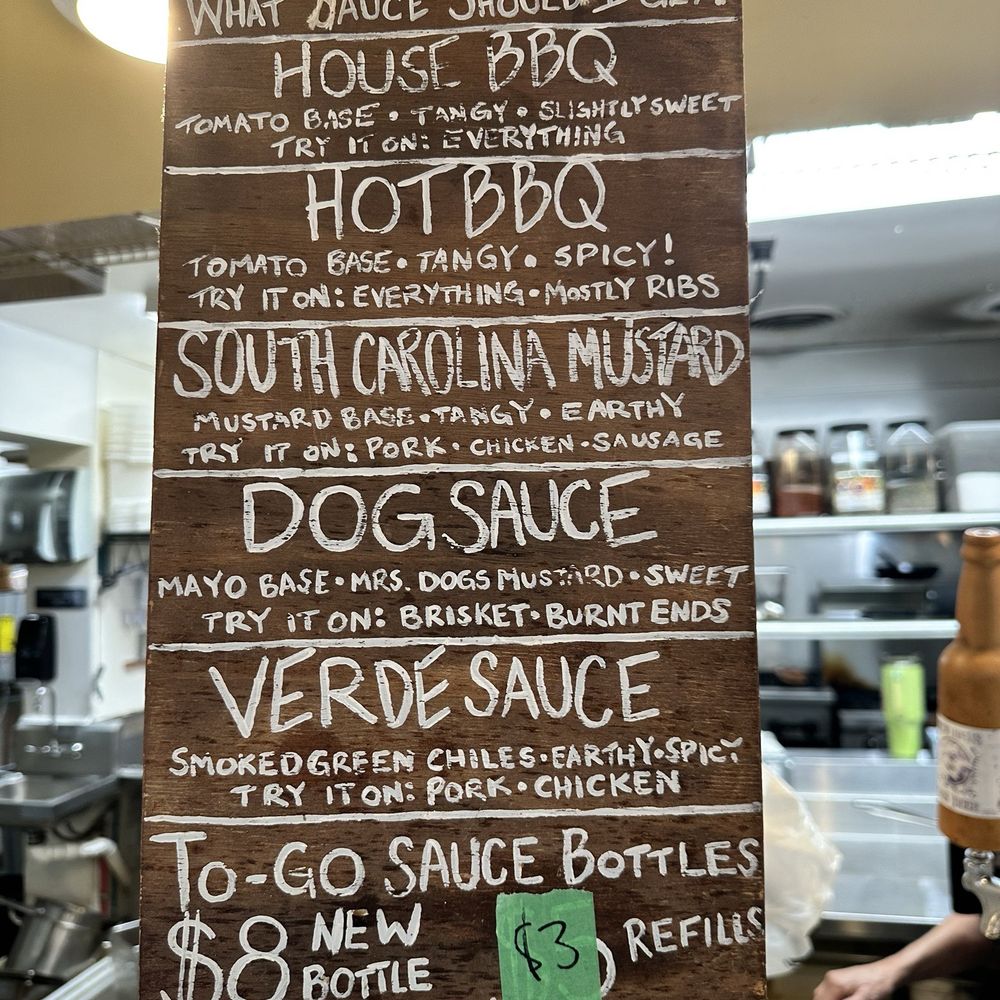 WHAT SAUCE SHOULD I GET?
HOUSE BBQ
TOMATO BASE • TANGY • SLIGHTLY SWEET
TRY IT ON: EVERYTHING
HOT BBQ
TOMATO BASE • TANGY • SPICY!
TRY IT ON: EVERYTHING • MOSTLY RIBS
SOUTH CAROLINA MUSTARD
MUSTARD BASE • TANGY • EARTHY
TRY IT ON: PORK • CHICKEN • SAUSAGE
DOG SAUCE
MAYO BASE • MRS. DOGS MUSTARD • SWEET
TRY IT ON: BRISKET • BURNT ENDS
VERDÉ SAUCE
SMOKED GREEN CHILES • EARTHY • SPICY
TRY IT ON: PORK • CHICKEN
TO-GO SAUCE BOTTLES
$8 NEW BOTTLE $3 REFILLS